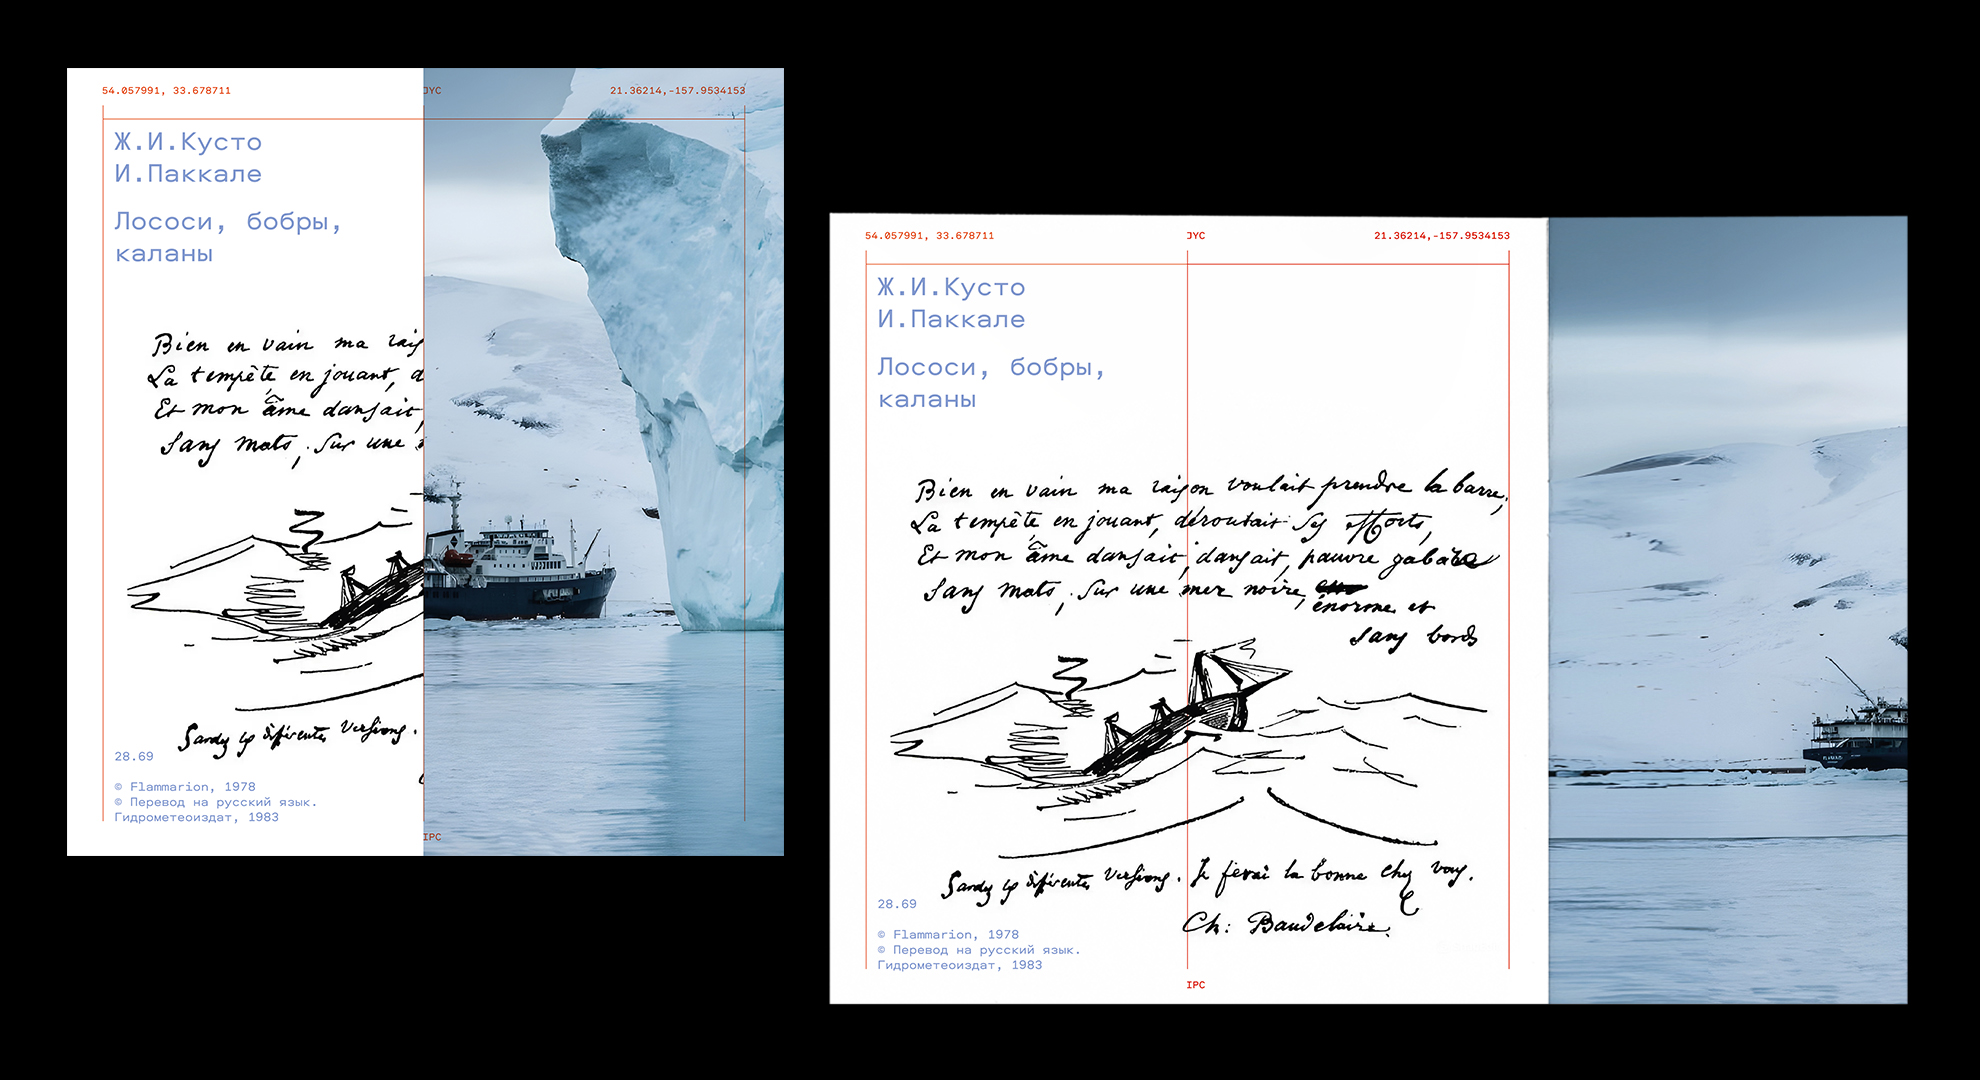 54.057991, 33.678711
JYC
21.36214,-157.9534153
Ж.И.Кусто
И.Паккале
Лососи, бобры,
каланы
Bien en vain ma rais
La tempête en jouant, d
Et mon âme dansait,
Sans mats, sur une
Sandy les différentes versions.
28.69
© Flammarion, 1978
© Перевод на русский язык.
Гидрометеоиздат, 1983
IPC
54.057991, 33.678711
JYC
21.36214,-157.9534153
Ж.И.Кусто
И.Паккале
Лососи, бобры,
каланы
Bien en vain ma raison voulait prendre la barre,
La tempête en jouant, déroutait ses efforts,
Et mon âme dansait, dansait, pauvre gabare
Sans mats, sur une mer noire,
énorme et
sans bords
les différentes versions. Je ferai la bonne chez vous.
28.69
Ch: Baudelaire.
© Flammarion, 1978
© Перевод на русский язык.
Гидрометеоиздат, 1983
IPC